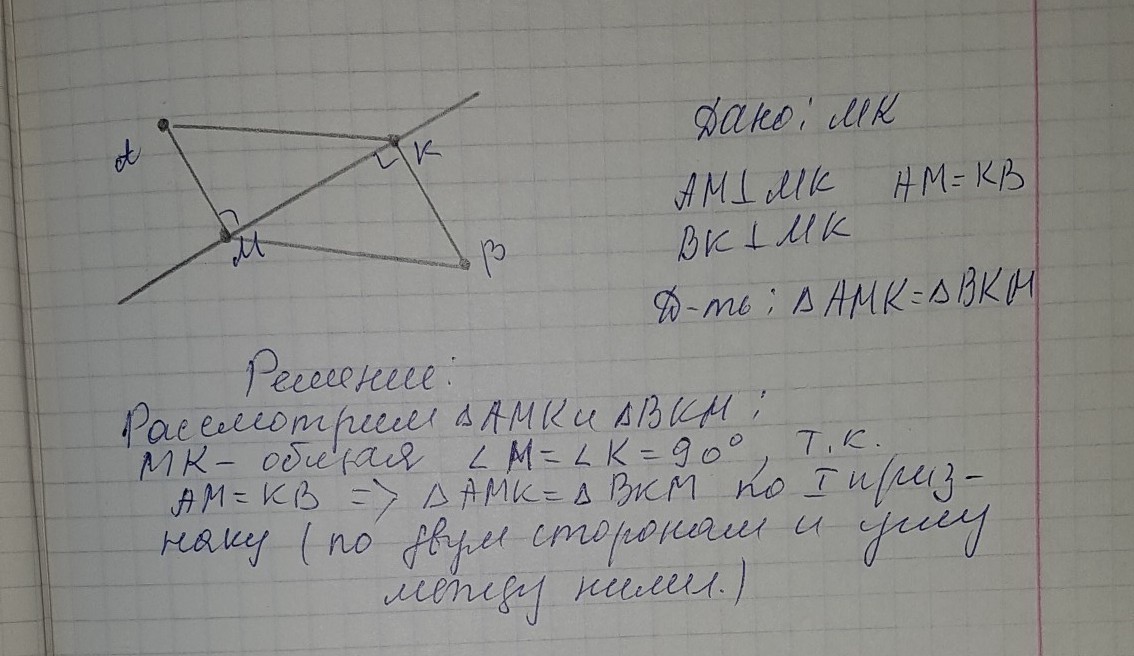 A
K
M
B
Дано: MK
AM⊥MK AM=KB
BK⊥MK
Д-ть: ΔAMK=ΔBKM
Решение:
Рассмотрим ΔAMK и ΔBKM:
MK - общая ∠M=∠K=90°, т.к.
AM=KB => ΔAMK=ΔBKM по I приз-
наку (по двум сторонам и углу
между ними.)